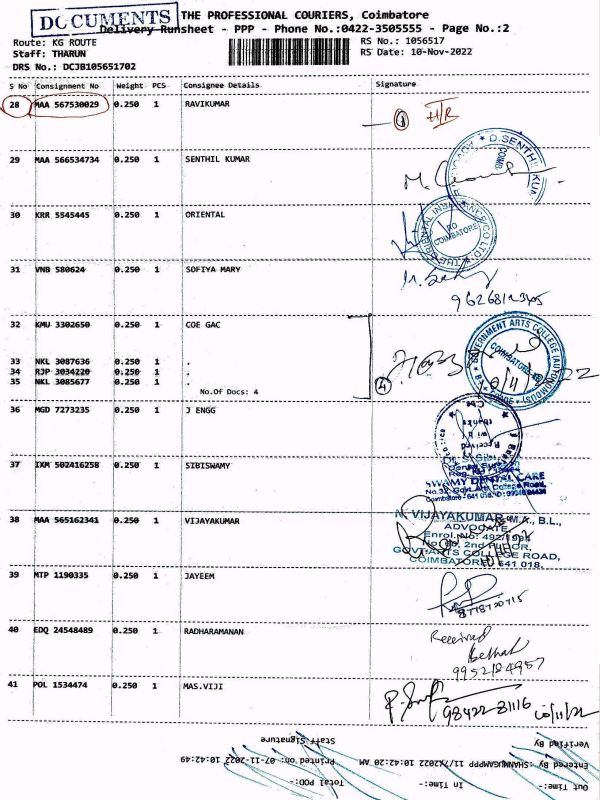 DOCUMENTS
THE PROFESSIONAL COURIERS, Coimbatore
Delivery Runsheet - PPP - Phone No.:0422-3505555 - Page No.:2
Route: KG ROUTE
Staff: THARUN
DRS No.: DCJB105651702
RS No.: 1056517
RS Date: 10-Nov-2022
S No Consignment No Weight PCS Consignee Details Signature
28 MAA 567530029 0.250 1 RAVIKUMAR
29 MAA 566534734 0.250 1 SENTHIL KUMAR
D.SENTHIL KUMAR
30 KRR 5545445 0.250 1 ORIENTAL
COIMBATORE
31 VNB 580624 0.250 1 SOFIYA MARY
32 KMU 3302650 0.250 1 COE GAC
GOVERNMENT ARTS COLLEGE (AUTONOMOUS)
COIMBATORE
33 NKL 3087636 0.250 1 .
34 RJP 3034220 0.250 1 .
35 NKL 3085677 0.250 1 .
No.Of Docs: 4
4
36 MGD 7273235 0.250 1 J ENGG
Received
with
thanks
37 IXM 502416258 0.250 1 SIBISWAMY
SWAMY DENTAL CARE
38 MAA 565162341 0.250 1 VIJAYAKUMAR
N. VIJAYAKUMAR M.A., B.L.,
ADVOCATE
2nd FLOOR,
GOVT ARTS COLLEGE ROAD,
COIMBATORE 641 018.
39 MTP 1190335 0.250 1 JAYEEM
8778720715
40 EDQ 24548489 0.250 1 RADHARAMANAN
Received
9952184957
41 POL 1534474 0.250 1 MAS.VIJI
98422 81116 10/11/22
Staff Signature
Verified By
Printed on: 07-11-2022 10:42:49
Entered By : SHANUGAMPPP /11/2022 10:42:20 AM
Total POD:-
In Time :-
Out Time :-